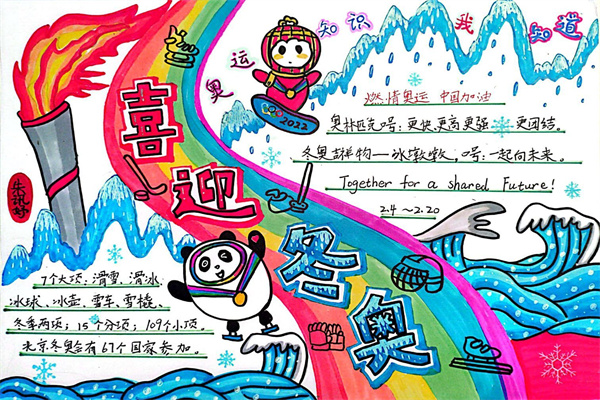 喜迎冬奥
奥运知识我知道
2022
燃情奥运 中国加油
奥林匹克口号：更快更高更强——更团结。
冬奥吉祥物—冰墩墩，口号：一起向未来。
Together for a shared Future!
2.4～2.20
7个大项：滑雪、滑冰
冰球、冰壶、雪车、雪橇、
冬季两项；15个分项；109个小项。
北京冬奥会有67个国家参加。